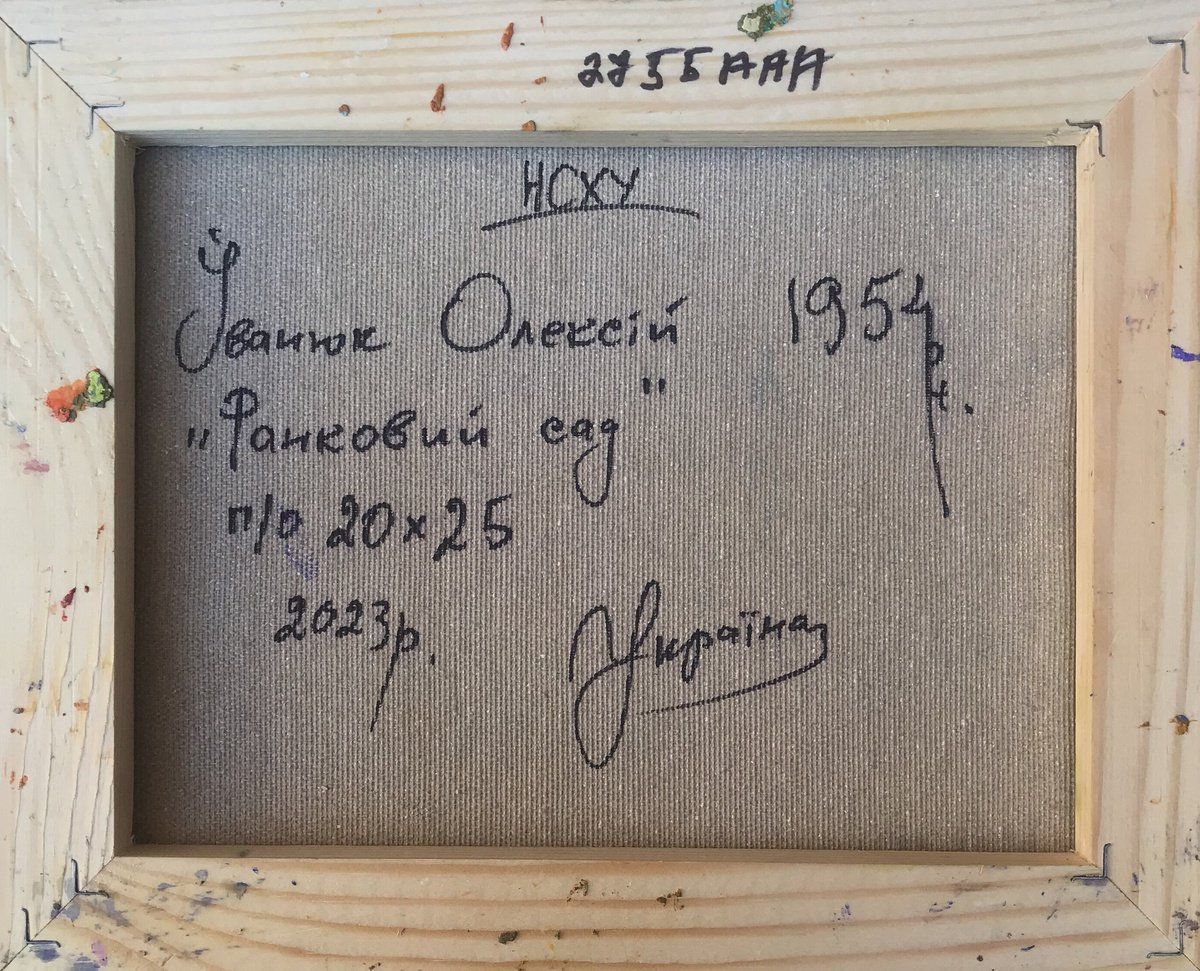 2755ААА
НСХУ
Іванюк Олексій 1954 р.н.
„Ранковий сад"
п/о 20х25
2023р.
Україна